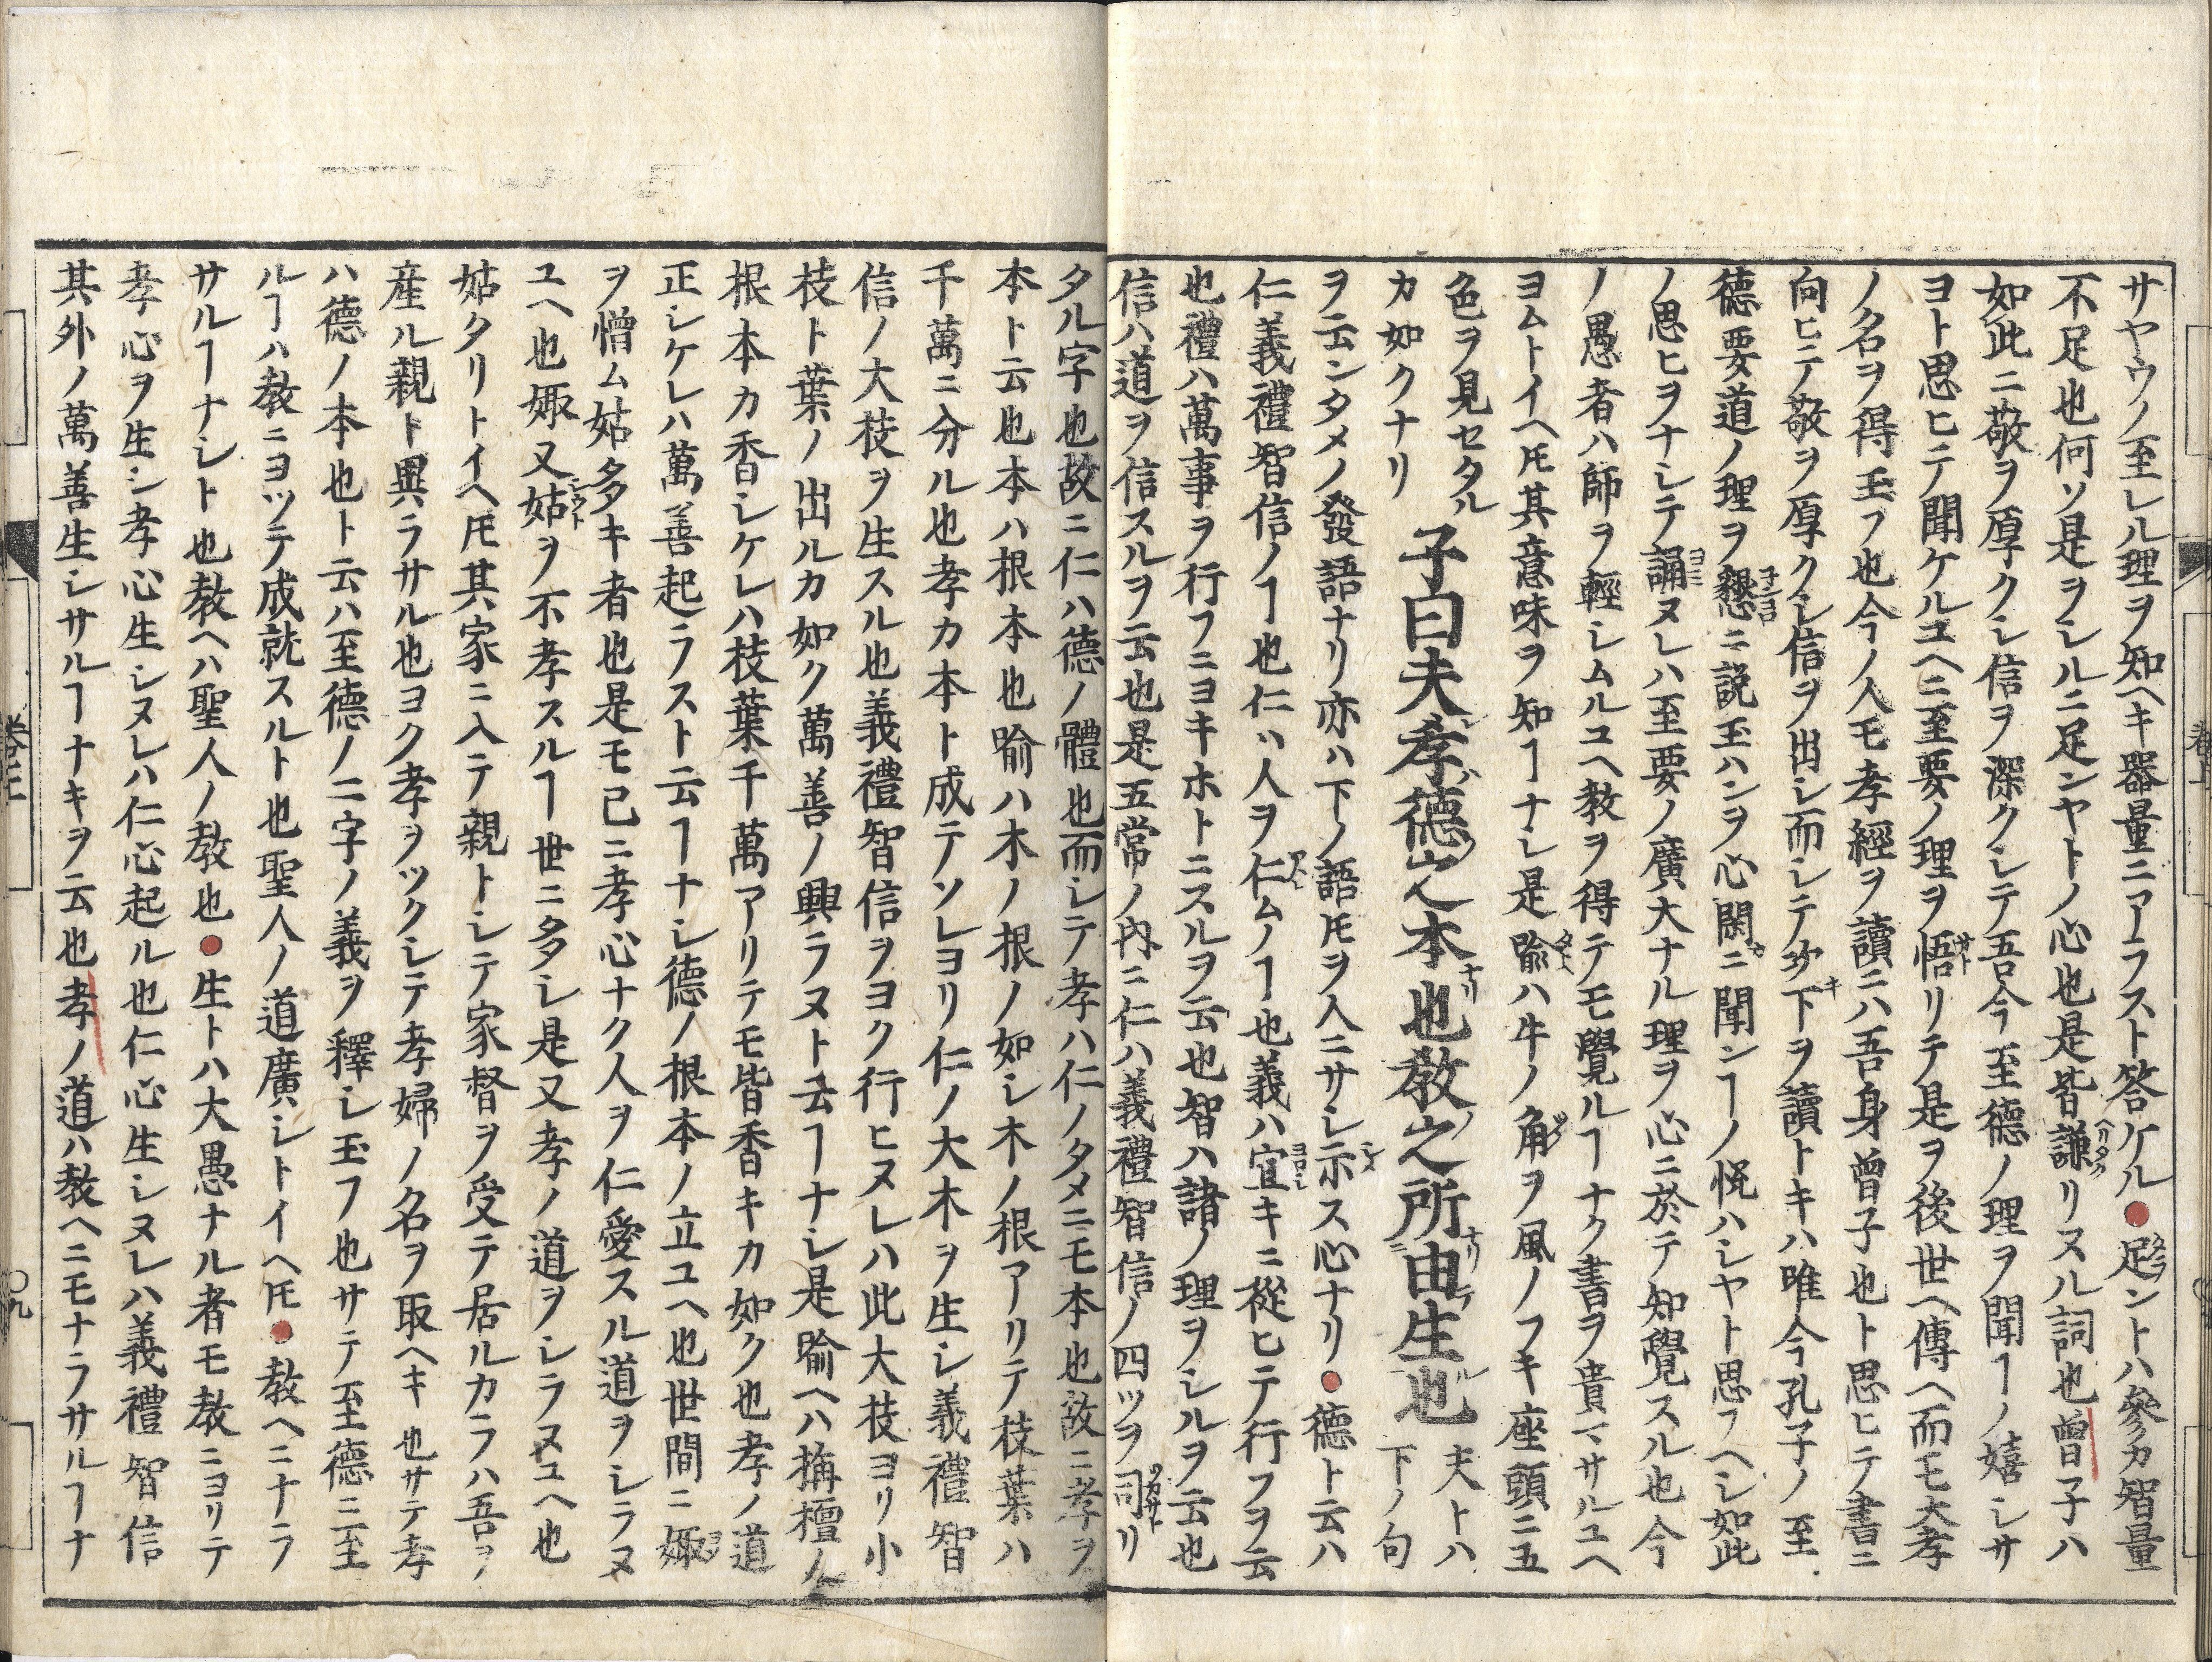 サヤウノ至レル理ヲ知ヘキ器量ニアラスト答ケル●足ントハ參カ智量
不足也何ソ是ヲシルニ足ンヤトノ心也是皆謙リヌル詞也曾子ハ
如此ニ敬ヲ厚クシ信ヲ深クシテ吾今至德ノ理ヲ聞ヿノ嬉シサ
ヨト思ヒテ聞ケルユヘニ至要ノ理ヲ悟リテ是ヲ後世ヘ傳ヘ而モ大孝
ノ名ヲ得玉フ也今ノ人モ孝經ヲ讀ニハ吾身曾子也ト思ヒテ書ニ
向ヒテ敬ヲ厚クシ信ヲ出シ而シテ沙下ヲ讀トキハ唯今孔子ノ至
德要道ノ理ヲ懇ニ説玉ハンヲ心閑ニ聞ンヿノ悅ハシヤト思フヘシ如此
ノ思ヒヲナシテ誦ヌレハ至要ノ廣大ナル理ヲ心ニ於テ知覺スル也今
ノ愚者ハ師ヲ輕シムルユヘ教ヲ得テモ覺ルヿナク書ヲ貴マサルユヘ
ヨムトイヘ𪜈其意味ヲ知ヿナシ是喩ハ牛ノ角ヲ風ノフキ座頭ニ五
色ヲ見セタル
カ如クナリ
子曰夫孝德之本也教之所由生也
夫トハ
下ノ句
ヲ云ンタメノ發語ナリ亦ハ下ノ語𪜈ヲ人ニサシ示ス心ナリ●德ト云ハ
仁義禮智信ノヿ也仁ハ人ヲ仁ムノヿ也義ハ宜キニ從ヒテ行フヲ云
也禮ハ萬事ヲ行フニヨキホトニスルヲ云也智ハ諸ノ理ヲシルヲ云也
信ハ道ヲ信スルヲ云也是五常ノ內ニ仁ハ義禮智信ノ四ツヲ司リ
タル字也故ニ仁ハ德ノ體也而シテ孝ハ仁ノタメニモ本也故ニ孝ヲ
本ト云也本ハ根本也喻ハ木ノ根ノ如シ木ノ根アリテ枝葉ハ
千萬ニ分ル也孝カ本ト成テソレヨリ仁ノ大木ヲ生シ義禮智
信ノ大枝ヲ生スル也義禮智信ヲヨク行ヒヌレハ此大枝ヨリ小
枝ト葉ノ出ルカ如ク萬善ノ興ラヌト云ヿナシ是喻ヘハ栴檀ノ
根本カ香シケレハ枝葉千萬アリテモ皆香キカ如ク也孝ノ道
正シケレハ萬善起ラスト云ヿナシ德ノ根本ノ立ユヘ也世間ニ娵
ヲ憎ム姑多キ者也是モ已ニ孝心ナク人ヲ仁愛スル道ヲシラヌ
ユヘ也娵又姑ヲ不孝スルヿ世ニ多シ是又孝ノ道ヲシラヌユヘ也
姑タリトイヘ𪜈其家ニ入テ親トシテ家督ヲ受テ居ルカラハ吾ヲ
産ル親ト異ラサル也ヨク孝ヲツクシテ孝婦ノ名ヲ取ヘキ也サテ孝
ハ德ノ本也ト云ハ至德ノ二字ノ義ヲ釋シ玉フ也サテ至德ニ至
ルヿハ教ニヨツテ成就スルト也聖人ノ道廣シトイヘ𪜈●教ヘニナラ
サルヿナシト也教ヘハ聖人ノ教也●生トハ大愚ナル者モ教ニヨリテ
孝心ヲ生シ孝心生シヌレハ仁心起ル也仁心生シヌレハ義禮智信
其外ノ萬善生シサルヿナキヲ云也孝ノ道ハ教ヘニモナラサルヿナ